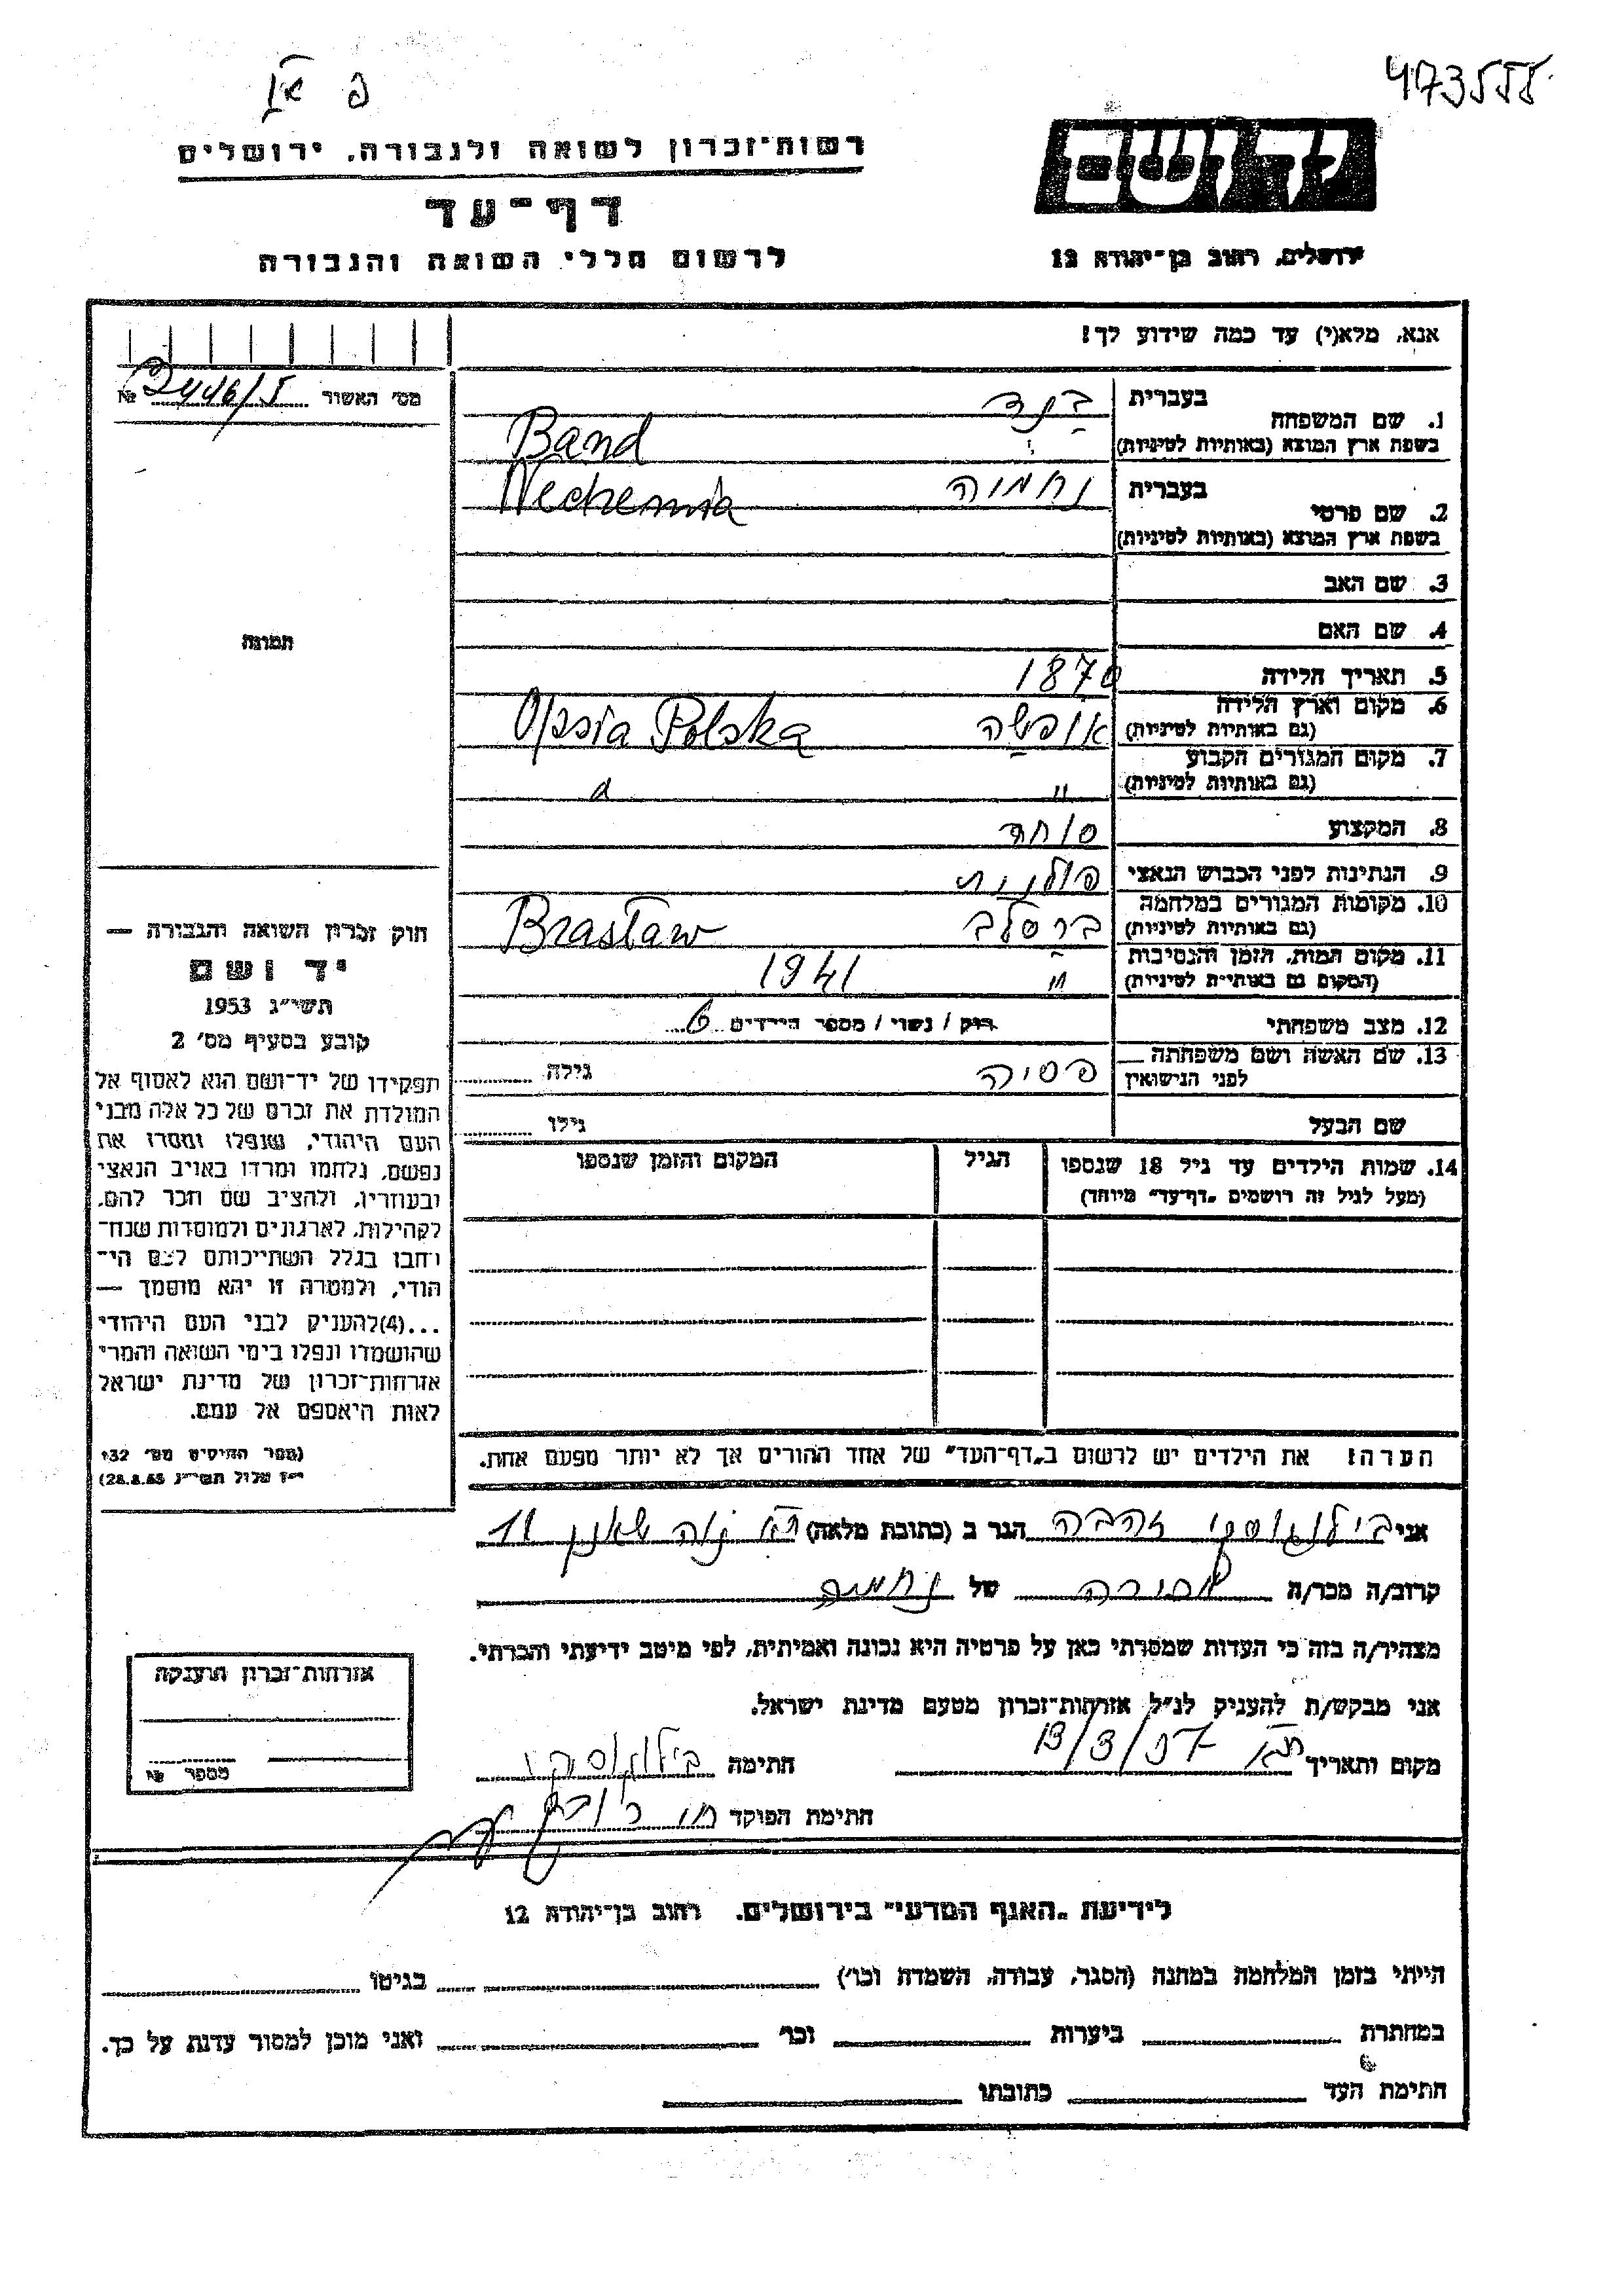 473555
רשות־זכרון לשואה ולגבורה, ירושלים
דף־עד
לרשום חללי השואה והגבורה
יד ושם
ירושלים, רחוב בן־יהודה 12
אנא, מלא(י) עד כמה שידוע לך!
מס׳ האשור №
1. שם המשפחה בעברית בנד
בשפת ארץ המוצא (באותיות לטיניות) Band
2. שם פרטי בעברית נחמיה
בשפת ארץ המוצא (באותיות לטיניות) Nechemia
3. שם האב
4. שם האם
5. תאריך הלידה 1870
6. מקום וארץ הלידה (גם באותיות לטיניות) אופשה Opsia Polska
7. מקום המגורים הקבוע (גם באותיות לטיניות) " "
8. המקצוע סוחר
9. הנתינות לפני הכבוש הנאצי פולנית
10. מקומות המגורים במלחמה (גם באותיות לטיניות) ברסלב Brasław
11. מקום המות, הזמן והנסיבות (המקום גם באותיות לטיניות) " 1941
12. מצב משפחתי רוק / נשוי / מספר הילדים 6
13. שם האשה ושם משפחתה לפני הנישואין פסיה גילה
שם הבעל גילו
14. שמות הילדים עד גיל 18 שנספו
(מעל לגיל זה רושמים „דף־עד" מיוחד)
הגיל
המקום והזמן שנספו
תמונה
חוק זכרון השואה והגבורה —
יד ושם
תשי״ג 1953
קובע בסעיף מס׳ 2
תפקידו של יד־ושם הוא לאסוף אל
המולדת את זכרם של כל אלה מבני
העם היהודי, שנפלו ומסרו את
נפשם, נלחמו ומרדו באויב הנאצי
ובעוזריו, ולהציב שם וזכר להם,
לקהילות, לארגונים ולמוסדות שנח־
רחבו בגלל השתייכותם לעם הי־
הודי, ולמטרה זו יהא מוסמך —
...(4)להעניק לבני העם היהודי
שהושמדו ונפלו בימי השואה והמרי
אזרחות־זכרון של מדינת ישראל
לאות היאספם אל עמם.
(ספר החוקים מס׳ 132
י״ז אלול תשי״ג 28.8.53)
הערה: את הילדים יש לרשום ב„דף־העד" של אחד ההורים אך לא יותר מפעם אחת.
אני בילנוסקי זהבה הגר ב (כתובת מלאה) ת״א נוה שאנן 11
קרוב/ה מכר/ה של נחמיה
מצהיר/ה בזה כי העדות שמסרתי כאן על פרטיה היא נכונה ואמיתית, לפי מיטב ידיעתי והכרתי.
אני מבקש/ת להעניק לנ״ל אזרחות־זכרון מטעם מדינת ישראל.
מקום ותאריך ת״א 13/3/57 חתימה
חתימת הפוקד
אזרחות־זכרון הוענקה
מספר №
לידיעת „האגף המדעי" בירושלים, רחוב בן־יהודה 12
הייתי בזמן המלחמה במחנה (הסגר, עבודה, השמדה וכו׳) בגיטו
במחתרת ביערות וכו׳ ואני מוכן למסור עדות על כך.
חתימת העד כתובתו